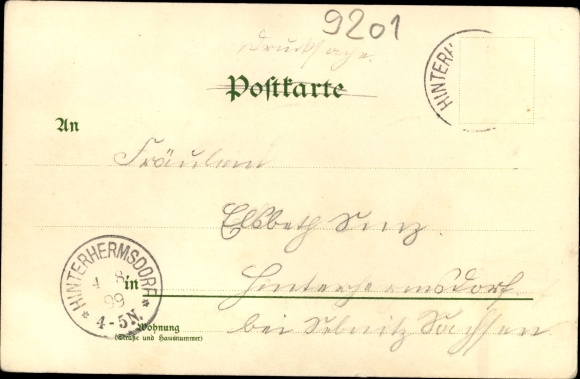 9201
Drucksache.
Postkarte
HINTERH
An
Fräulein
Elsbeth Senz.
HINTERHERMSDORF
4 8
99
4-5N.
in Hinterhermsdorf
bei Sebnitz Sachsen
Wohnung
(Straße und Hausnummer)